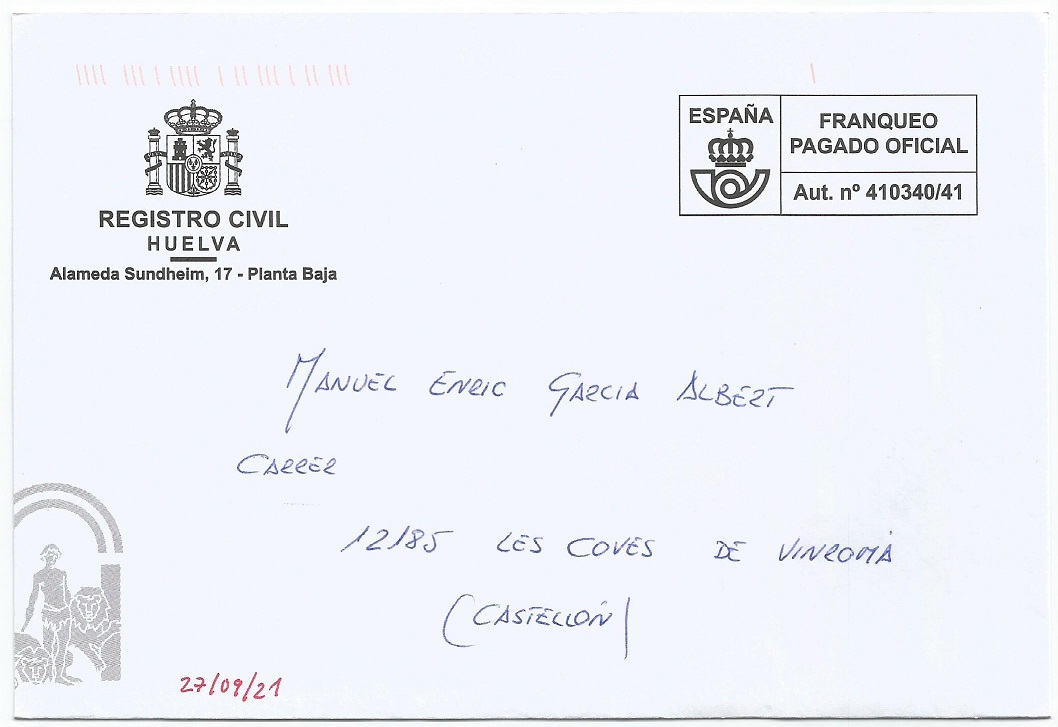 REGISTRO CIVIL
HUELVA
Alameda Sundheim, 17 - Planta Baja
ESPAÑA
FRANQUEO
PAGADO OFICIAL
Aut. nº 410340/41
MANUEL ENRIC GARCIA ALBERT
CARRER
12185 LES COVES DE VINROMÀ
(CASTELLÓN)
27/09/21